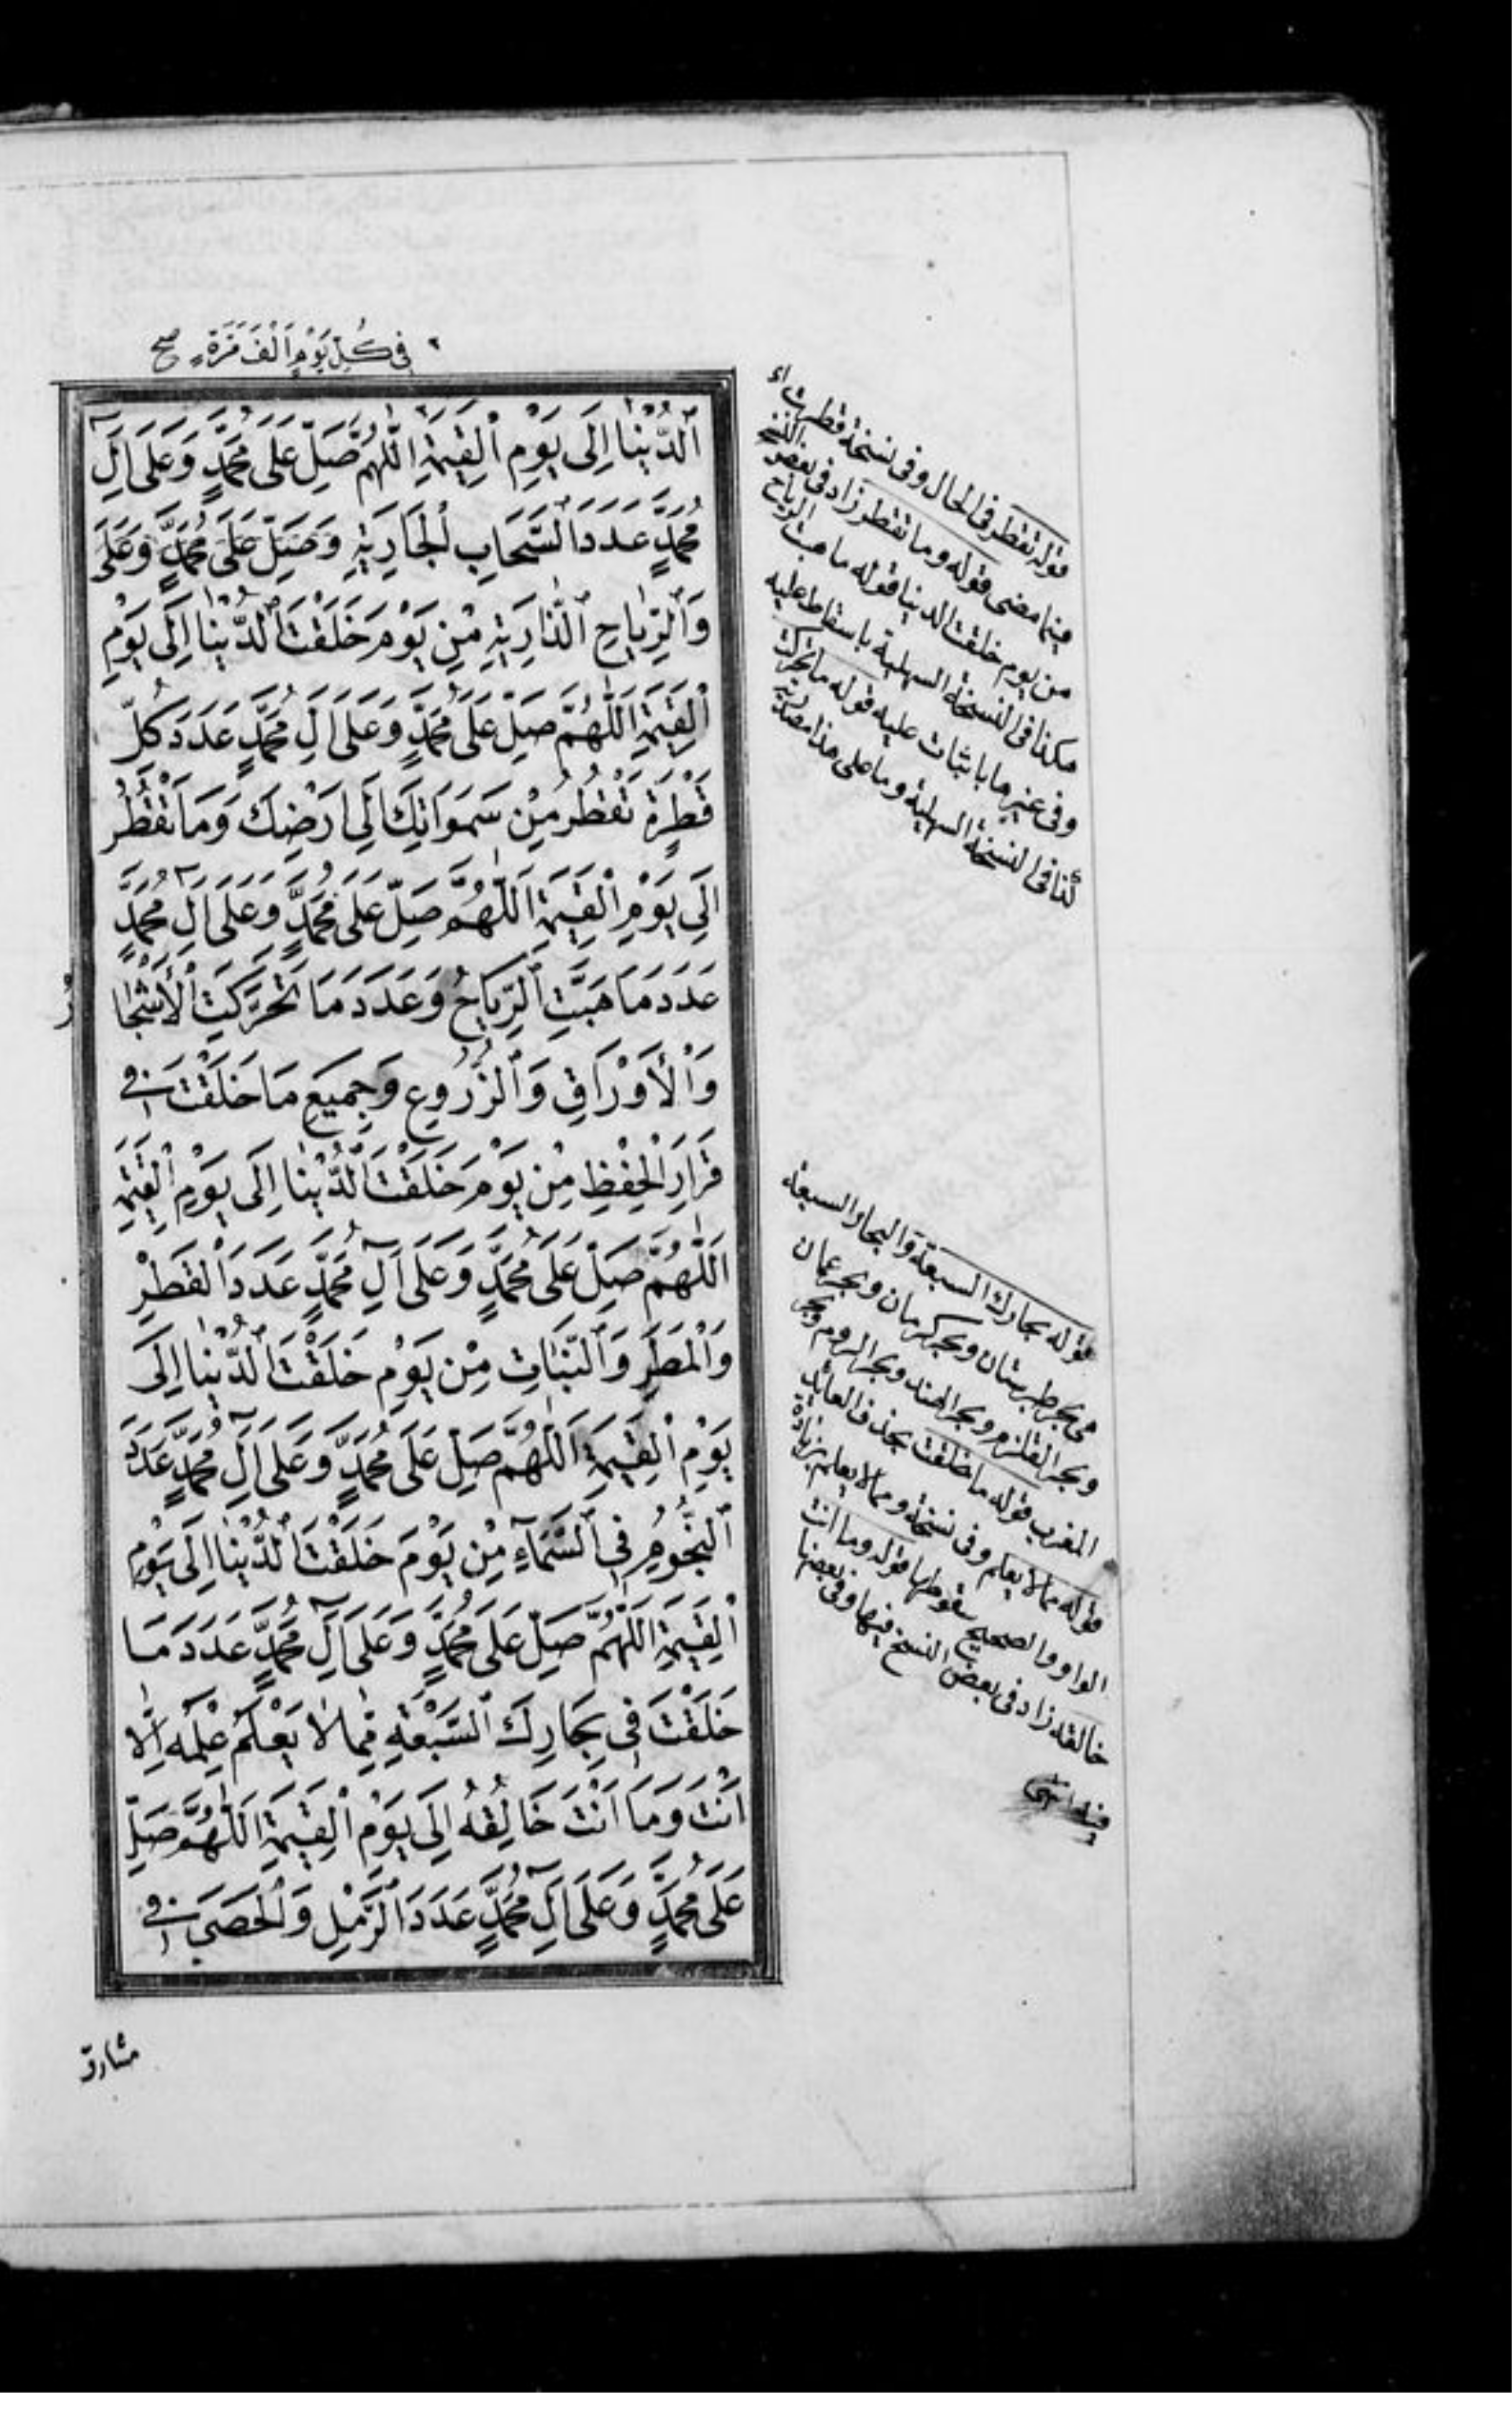 ٢ في كُلِّ يَوْمٍ اَلْفَ مَرَّةٍ صح
اَلدُّنْيَا اِلَى يَوْمِ الْقِيٰمَةِ اَللّٰهُمَّ صَلِّ عَلَى مُحَمَّدٍ وَعَلَى اٰلِ
مُحَمَّدٍ عَدَدَ السَّحَابِ الْجَارِيَةِ وَصَلِّ عَلَى مُحَمَّدٍ وَعَلَى
وَالرِّيَاحِ الذَّارِيَةِ مِنْ يَوْمَ خَلَقْتَ الدُّنْيَا اِلَى يَوْمِ
الْقِيٰمَةِ اَللّٰهُمَّ صَلِّ عَلَى مُحَمَّدٍ وَعَلَى اٰلِ مُحَمَّدٍ عَدَدَ كُلِّ
قَطْرَةٍ تَقْطُرُ مِنْ سَمَوَاتِكَ اِلَى اَرْضِكَ وَمَا تَقْطُرُ
اِلَى يَوْمِ الْقِيٰمَةِ اَللّٰهُمَّ صَلِّ عَلَى مُحَمَّدٍ وَعَلَى اٰلِ مُحَمَّدٍ
عَدَدَ مَا هَبَّتِ الرِّيَاحُ وَعَدَدَ مَا تَحَرَّكَتِ الْاَشْجَا
رُ
وَالْاَوْرَاقِ وَالزُّرُوعِ وَجَمِيعِ مَا خَلَقْتَ فِي
قَرَارِ الْحِفْظِ مِنْ يَوْمَ خَلَقْتَ الدُّنْيَا اِلَى يَوْمِ الْقِيٰمَةِ
اَللّٰهُمَّ صَلِّ عَلَى مُحَمَّدٍ وَعَلَى اٰلِ مُحَمَّدٍ عَدَدَ الْقَطْرِ
وَالْمَطَرِ وَالنَّبَاتِ مِنْ يَوْمِ خَلَقْتَ الدُّنْيَا اِلَى
يَوْمِ الْقِيٰمَةِ اَللّٰهُمَّ صَلِّ عَلَى مُحَمَّدٍ وَعَلَى اٰلِ مُحَمَّدٍ عَدَدَ
النُّجُومِ فِي السَّمَاۤءِ مِنْ يَوْمَ خَلَقْتَ الدُّنْيَا اِلَى يَوْمِ
الْقِيٰمَةِ اَللّٰهُمَّ صَلِّ عَلَى مُحَمَّدٍ وَعَلَى اٰلِ مُحَمَّدٍ عَدَدَ مَا
خَلَقْتَ فِي بِحَارِكَ السَّبْعَةِ مِمَّا لَا يَعْلَمُ عِلْمَهُ اِلَّا
اَنْتَ وَمَا اَنْتَ خَالِقُهُ اِلَى يَوْمِ الْقِيٰمَةِ اَللّٰهُمَّ صَلِّ
عَلَى مُحَمَّدٍ وَعَلَى اٰلِ مُحَمَّدٍ عَدَدَ الرَّمْلِ وَالْحَصَى فِي
مشارق
قوله تقطر في الحال وفي نسخة قطرت اي
فيما مضى قوله وما تقطر زاد في بعض النسخ
من يوم خلقت الدنيا قوله ما هبت الرياح
هكذا في النسخة السهلية باسقاط عليه
وفي غيرها باثبات عليه قوله ما تحركت
كذا في النسخة السهلية وما على هذا مصدرية
قوله بحارك السبعة والبحار السبعة
في بحر طبرستان وبحر كرمان وبحر عمان
وبحر القلزم وبحر الهند وبحر الروم وبحر
المغرب قوله ما خلقت بحذف العايد
قوله مما لا يعلم وفي نسخة ومما لا يعلم بزيادة
الواو والصحيح سقوطها قوله وما انت
خالقه زاد في بعض النسخ فيها وفي بعضها
فيه انتهى